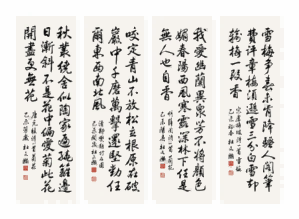 雪梅争春未肯降騷人閣筆
費評章梅須遜雪三分白雪却
輸梅一段香
我愛幽蘭異衆芳不將顏色
媚春陽西風寒露深林下任是
無人也自香
咬定青山不放松立根原在破
巖中千磨萬擊還堅勁任
爾東西南北風
秋叢繞舍似陶家遍繞籬邊
日漸斜不是花中偏愛菊此花
開盡更無花